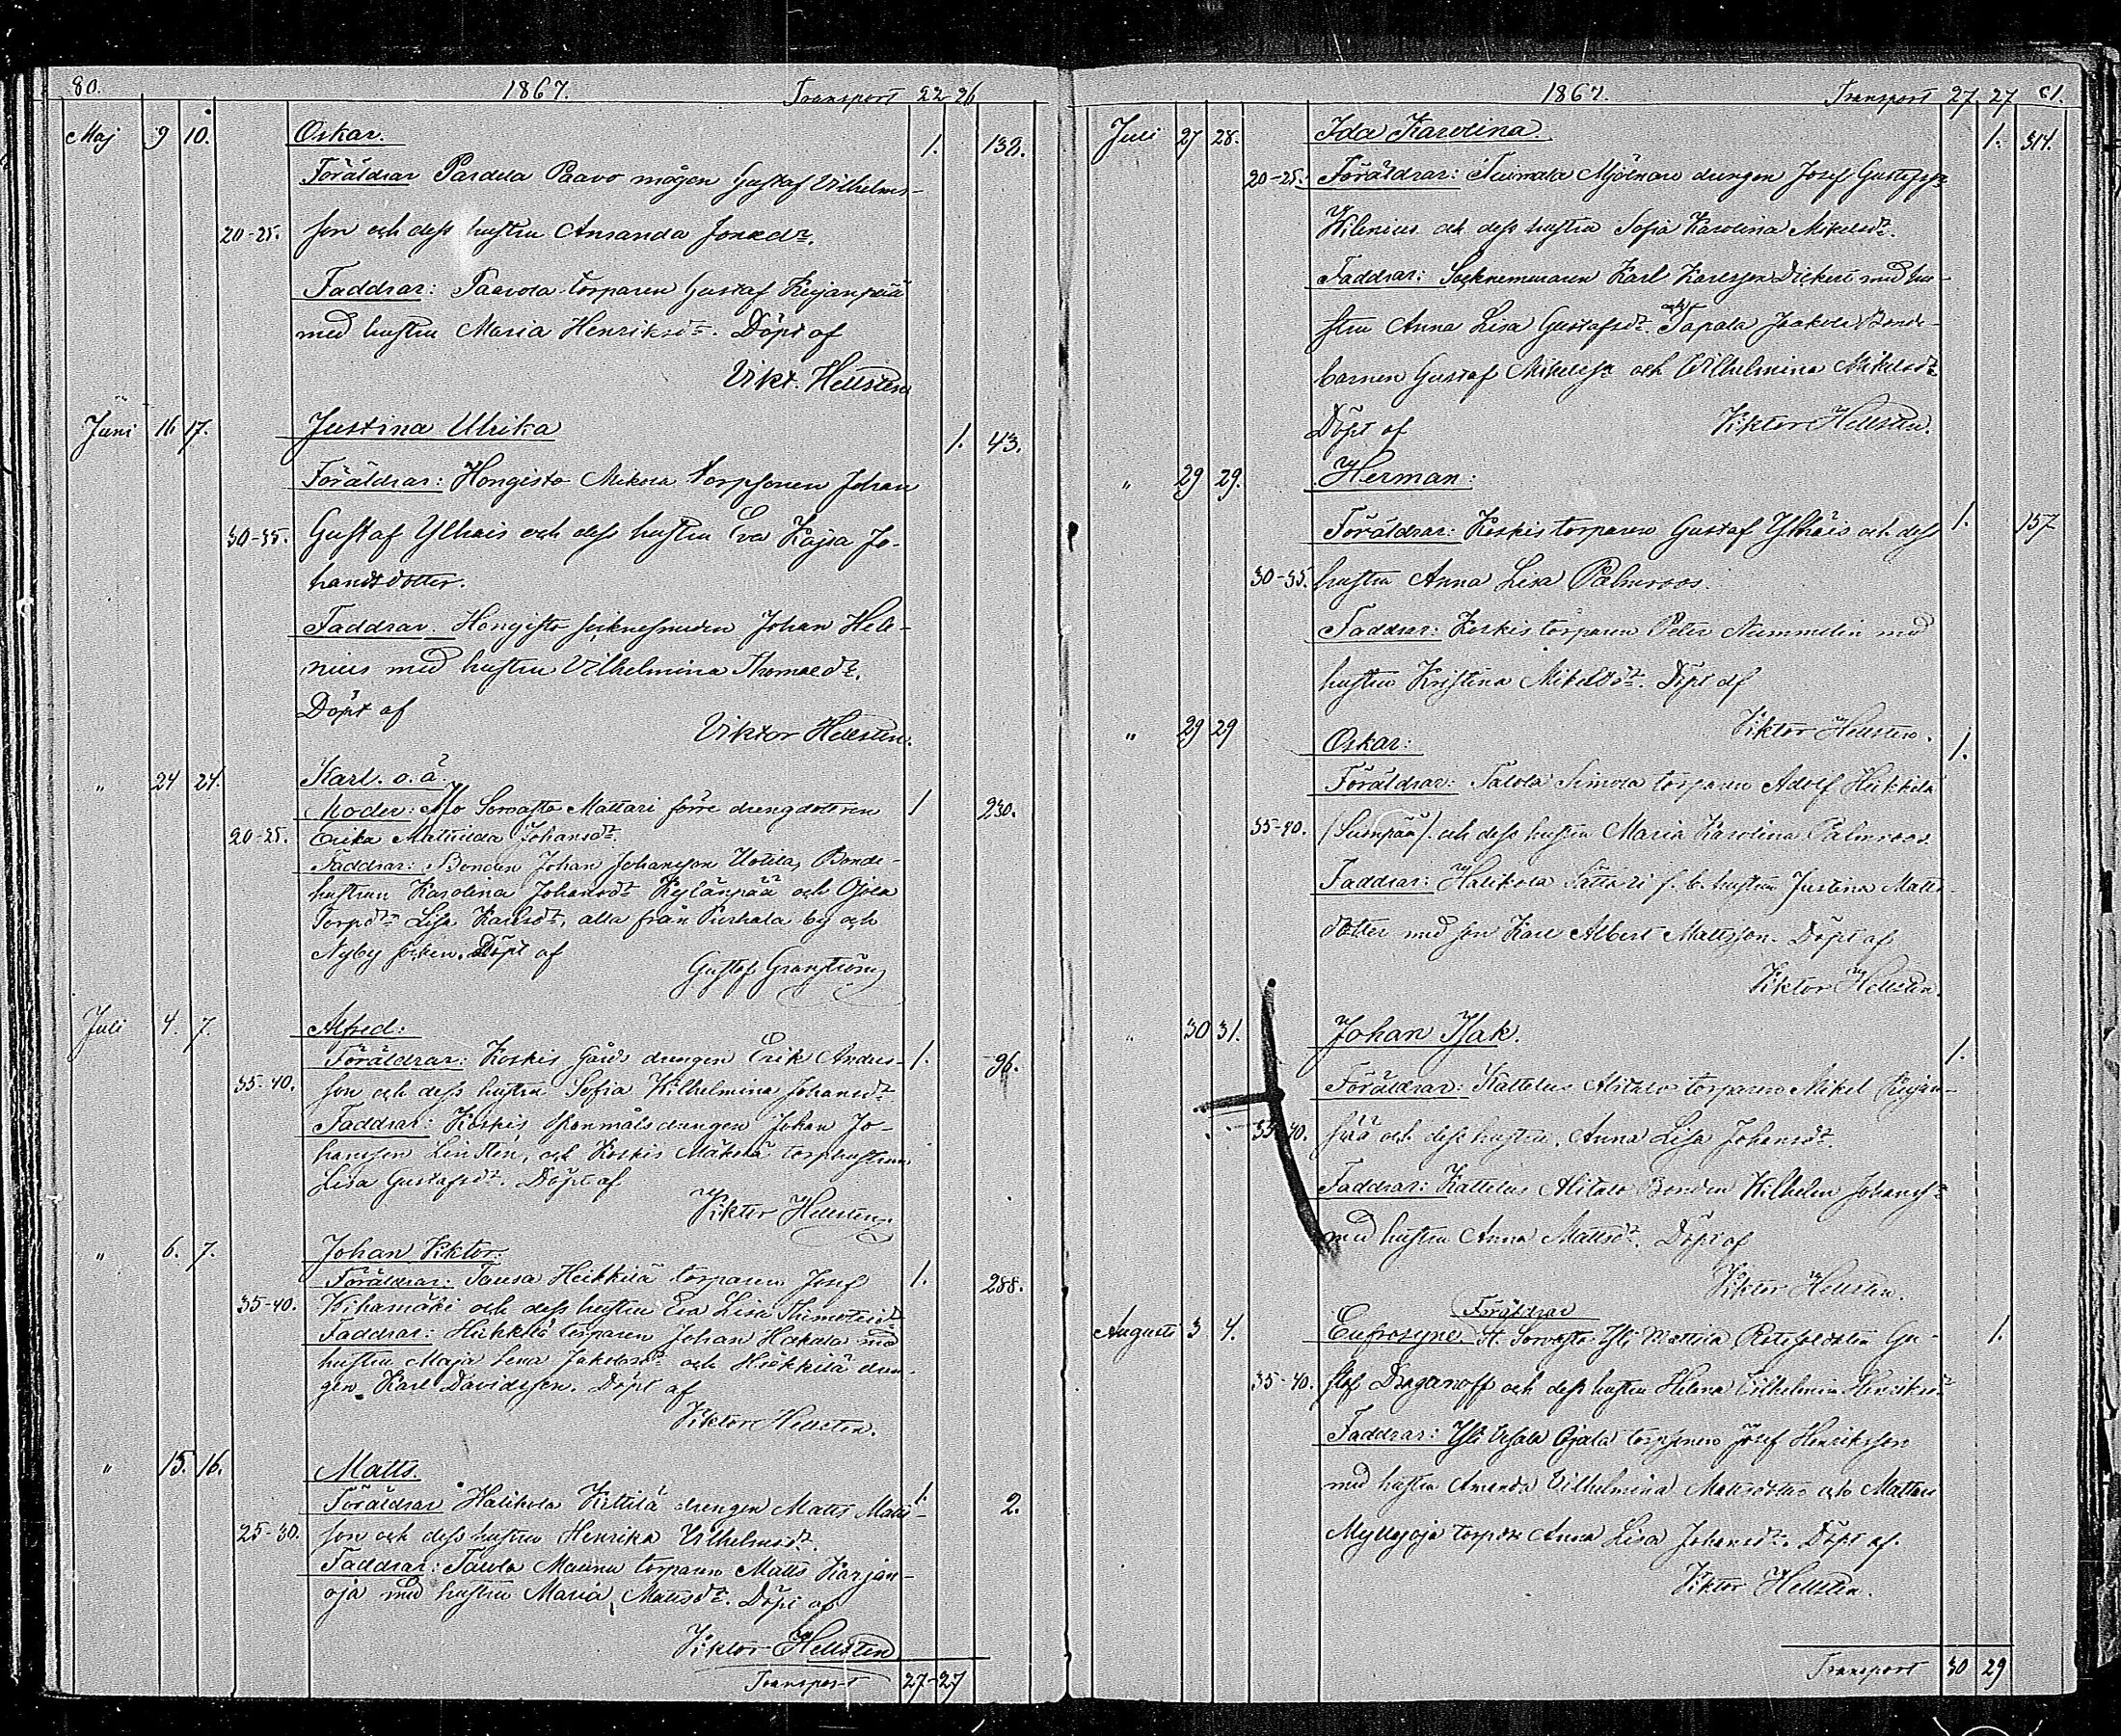 80. 1867. Transport 22 26
Maj 9 10. Oskar. 1. 138.
Föräldrar Pardela Paavo mågen Gustaf Vilhelms-
20-25. son och dess hustru Amanda Jonaedr.
Faddrar: Paavola torparen Gustaf Kujanpää
med hustru Maria Henriksdr. Döpt af
Vikt. Hellsten
Juni 16 17. Justina Ulrika 1. 43.
Föräldrar: Hongisto Mikola torpsonen Johan
30-35. Gustaf Ylhais och dess hustru Eva Kajsa Jo-
handsdotter.
Faddrar. Hongisto socknesmeden Johan Hele-
nius med hustru Vilhelmina Thomasdr.
Döpt af
Viktor Hellsten.
" 24 24. Karl. o. ä. 1 230.
Moder: Mattari förre drengdottren
20-25. Erika Mathilda Johansdr.
Faddrar: Bonden Johan Johansson Uotila, Bonde-
hustrun Karolina Johansdr Kylänpää och Ojola
Torpdr. Lisa Karlsdr, alla från Purhala by och
Nyby socken. Döpt af
Gustaf Granström
Juli 4. 7. Alfred: 1. 96.
Föräldrar: Koskis Gårds drengen Erik Anders-
35-40. son och dess hustru Sofia Wilhelmina Johansdr.
Faddrar: Koskis spanmålsdrengen Johan Jo-
hansson Lindsten, och Koskis Mäkelä torphustrun
Lisa Gustafsdr. Döpt af
Viktor Hellsten.
" 6. 7. Johan Viktor. 1. 288.
Föräldrar: Tausa Heikkilä torparen Josef
35-40. Wihamäki och dess hustru Eva Lisa Thimoteidr
Faddrar: Heikkilä torparen Johan Hakala med
hustru Maja Lena Jakobsdr och Heikkilä dren-
gen Karl Davidsson. Döpt af
Viktor Hellsten.
" 15. 16. Matts. 1. 2.
Föräldrar Halikola Kittilä drengen Matts Matts-
25-30. son och dess hustru Henrika Vilhelmsdr.
Faddrar: Talola Maunu torparen Matts Karjan-
oja med hustru Maria Mattsdr. Döpt af
Viktor Hellsten
Transport 27-27
1867. Transport 27 27 81.
Juli 27 28. Ida Karolina 1. 314.
20-25. Föräldrar: Tuimala Mjölnare drengen Josef Gustafssn
Wilenius och dess hustru Sofia Karolina Mikelsdr.
Faddrar: Karl Karlsson Dickert med hu-
stru Anna Lisa Gustafsdr och Tapala Jaakola Bonde-
barnen Gustaf Mikelssn och Vilhelmina Mikelsdr
Döpt af Viktor Hellsten.
" 29 29. Herman: 1. 157
Föräldrar: Koskis torparen Gustaf Ylhäis och dess
30-35. hustru Anna Lisa Palmroos.
Faddrar: Koskis torparen Peter Nummelin med
hustru Kristina Mikelsdr. Döpt af
Viktor Hellsten.
" 29 29 Oskar: 1.
Föräldrar: Talola Simola torparen Adolf Heikkilä
35-40. (Suonpää). och dess hustru Maria Karolina Palmroos.
Faddrar: Halikola Sättäri f. b. hustrun Justina Matts-
dotter med son Karl Albert Mattsson. Döpt af
Viktor Hellsten.
" 30 31. Johan Isak. 1.
Föräldrar: Kattelus Alitalo torparen Mikel Kujan-
35-40. pää och dess hustru, Anna Lisa Johansdr.
Faddrar: Kattelus Alitalo Bonden Wilhelm Johanssn
med hustru Anna Mattsdr. Döpt af
Viktor Hellsten.
Föräldrar
Augusti 3 4. Eufrosyne St. Sorvasto Yli Mattila Gu- 1.
35-40. staf Draganoff och dess hustru Helena Vilhelmina Henriksdr
Faddrar: Yli Ojala torpsonen Josef Henriksson
med hustru Amanda Vilhelmina Mattsdotter och Mattari
Myllyoja torpdr Anna Lisa Johansdr. Döpt af.
Viktor Hellsten.
Transport 30 29